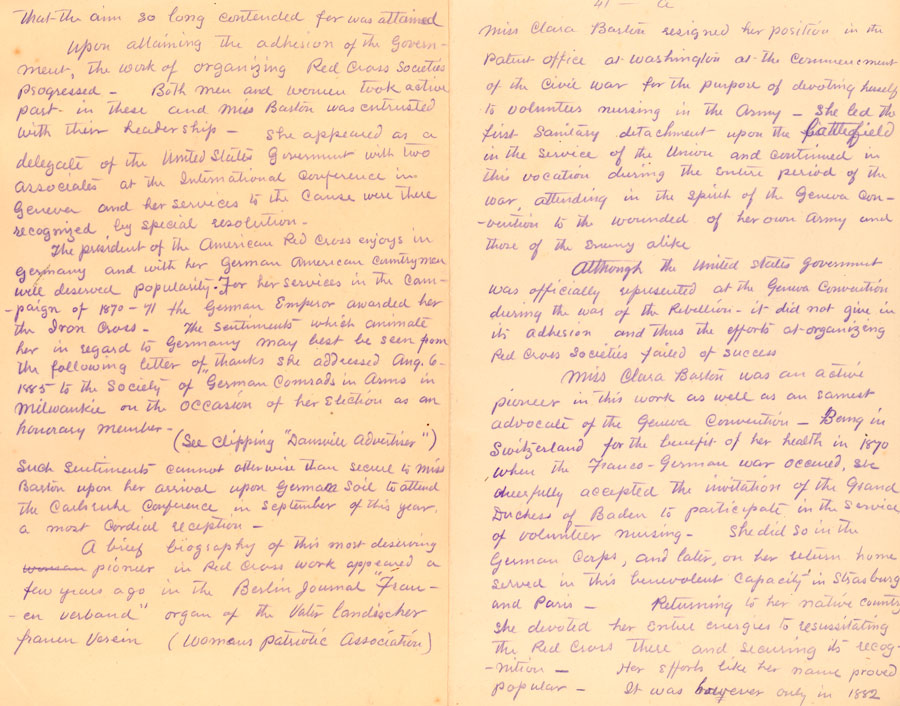 that the aim so long contended for was attained
Upon attaining the adhesion of the Govern-
ment, the work of organizing Red Cross Societies
progressed - Both men and women took active
part in these and Miss Barton was entrusted
with their leadership - She appeared as a
delegate of the United States Goverment with two
associates at the International Conference in
Geneva and her services to the cause were there
recognized by special resolution -
The president of the American Red Cross enjoys in
Germany and with her German American countrymen
well deserved popularity. For her services in the Cam-
-paign of 1870-71 the German Emperor awarded her
the Iron Cross - The sentiments which animate
her in regard to Germany may best be seen from
the following letter of thanks she addressed Aug. 6-
1885 to the Society of "German Comrads in Arms in
Milwaukie on the occasion of her election as an
honorary member -
(See Clipping "Dansville Advertiser")
Such sentiments cannot otherwise than secure to Miss
Barton upon her arrival upon German Soil to attend
the Carlsruhe Conference in September of this year,
a most cordial reception -
A brief biography of this most deserving
woman pioneer in Red Cross work appeared a
few years ago in the Berlin Journal "Frau-
-en verband" organ of the Vater landischer
frauen Verein (Womans Patriotic Association)
41 - a
Miss Clara Barton resigned her position in the
Patent office at Washington at the commencement
of the Civil war for the purpose of devoting herself
to volunteer nursing in the Army - She led the
first Sanitary detachment upon the battlefield
in the service of the Union and continued in
this vocation during the entire period of the
war, attending in the spirit of the Geneva Con-
-vention to the wounded of her own Army and
those of the enemy alike
Although the United States goverment
was officially represented at the Geneva Convention
during the war of the Rebellion - it did not give in
its adhesion and thus the efforts at organizing
Red Cross Societies failed of success
Miss Clara Barton was an active
pioneer in this work as well as an earnest
advocate of the Geneva Convention - Being in
Switzerland for the benefit of her health in 1870
when the Franco-German war occured, she
cheerfully accepted the invitation of the Grand
Duchess of Baden to participate in the Service
of volunteer nursing - She did so in the
German Corps, and later, on her return home
served in this benevolent capacity in Strasburg
and Paris - Returning to her native country
she devoted her entire energies to resussitating
the Red Cross there and securing its recog-
-nition - Her efforts like her name proved
popular - It was however only in 1882